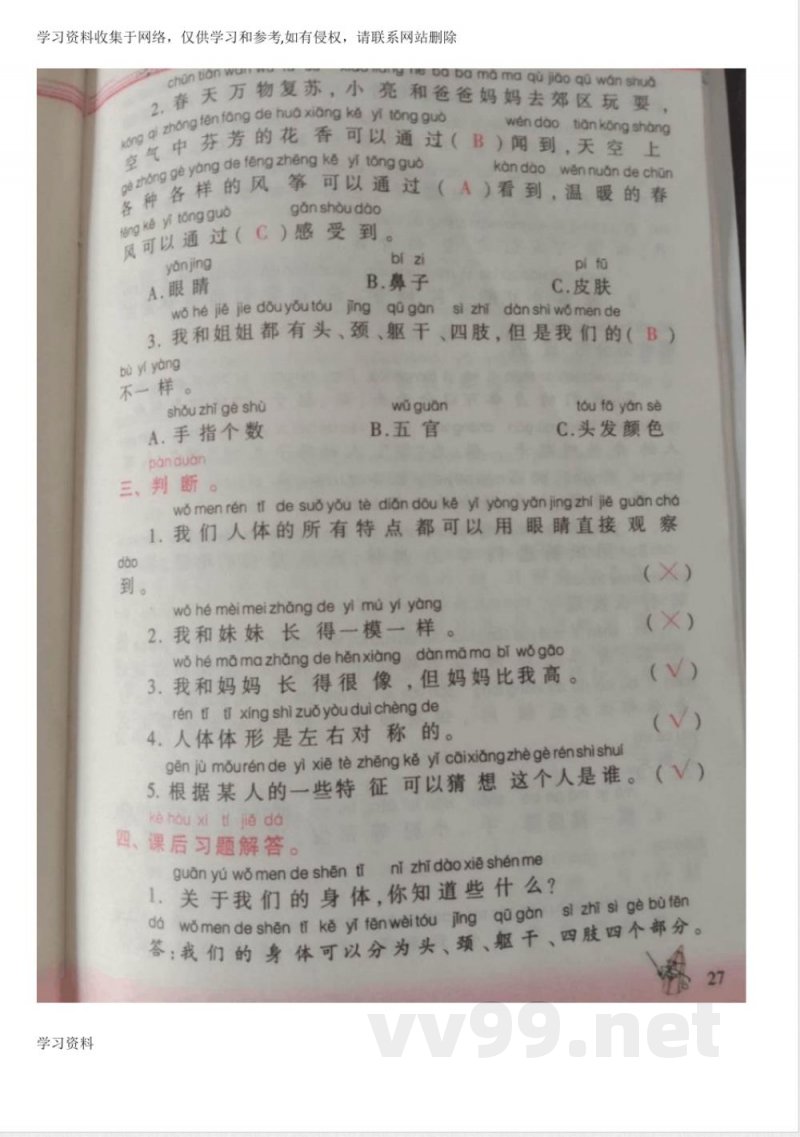 学习资料收集于网络，仅供学习和参考,如有侵权，请联系网站删除
2.春天万物复苏,小亮和爸爸妈妈去郊区玩耍,
kōng qì zhōng fēn fāng de huā xiāng kě yǐ tōng guò wén dào tiān kōng shàng
空气中芬芳的花香可以通过( B )闻到,天空上
gè zhǒng gè yàng de fēng zhēng kě yǐ tōng guò kàn dào wēn nuǎn de chūn
各种各样的风筝可以通过( A )看到,温暖的春
fēng kě yǐ tōng guò gǎn shòu dào
风可以通过( C )感受到。
yǎn jing bí zi pí fū
A.眼睛 B.鼻子 C.皮肤
wǒ hé jiě jie dōu yǒu tóu jǐng qū gàn sì zhī dàn shì wǒ men de
3.我和姐姐都有头、颈、躯干、四肢,但是我们的( B )
bù yí yàng
不一样。
shǒu zhǐ gè shù wǔ guān tóu fà yán sè
A.手指个数 B.五官 C.头发颜色
pàn duàn
三、判断。
wǒ men rén tǐ de suǒ yǒu tè diǎn dōu kě yǐ yòng yǎn jing zhí jiē guān chá
1.我们人体的所有特点都可以用眼睛直接观察
dào
到。 (×)
wǒ hé mèi mei zhǎng de yì mú yí yàng
2.我和妹妹长得一模一样。 (×)
wǒ hé mā ma zhǎng de hěn xiàng dàn mā ma bǐ wǒ gāo
3.我和妈妈长得很像,但妈妈比我高。 (√)
rén tǐ tǐ xíng shì zuǒ yòu duì chèng de
4.人体体形是左右对称的。 (√)
gēn jù mǒu rén de yì xiē tè zhēng kě yǐ cāi xiǎng zhè gè rén shì shuí
5.根据某人的一些特征可以猜想这个人是谁。(√)
kè hòu xí tí jiě dá
四、课后习题解答。
guān yú wǒ men de shēn tǐ nǐ zhī dào xiē shén me
1.关于我们的身体,你知道些什么?
dá wǒ men de shēn tǐ kě yǐ fēn wéi tóu jǐng qū gàn sì zhī sì gè bù fēn
答:我们的身体可以分为头、颈、躯干、四肢四个部分。
27
学习资料
vv99.net